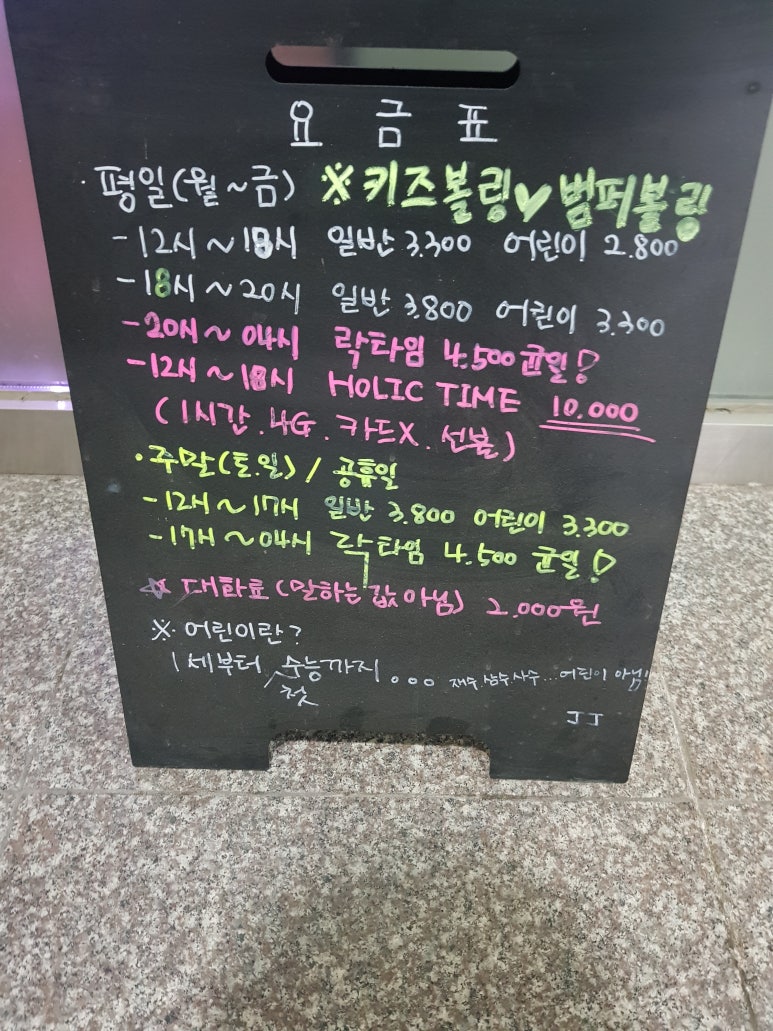 요 금 표
· 평일(월~금) ※키즈볼링♡범퍼볼링
- 12시 ~ 18시 일반 3.300 어린이 2.800
- 18시 ~ 20시 일반 3.800 어린이 3.300
- 20시 ~ 04시 락타임 4.500 균일!
- 12시 ~ 18시 HOLIC TIME 10.000
(1시간.4G.카드X.선불)
· 주말(토.일) / 공휴일
- 12시 ~ 17시 일반 3.800 어린이 3.300
- 17시 ~ 04시 락타임 4.500 균일!
☆ 대화료(말하는 값 아님) 2.000원
※ 어린이란?
1세부터 첫 수능까지 ... 재수.삼수.사수...어린이 아님!
JJ